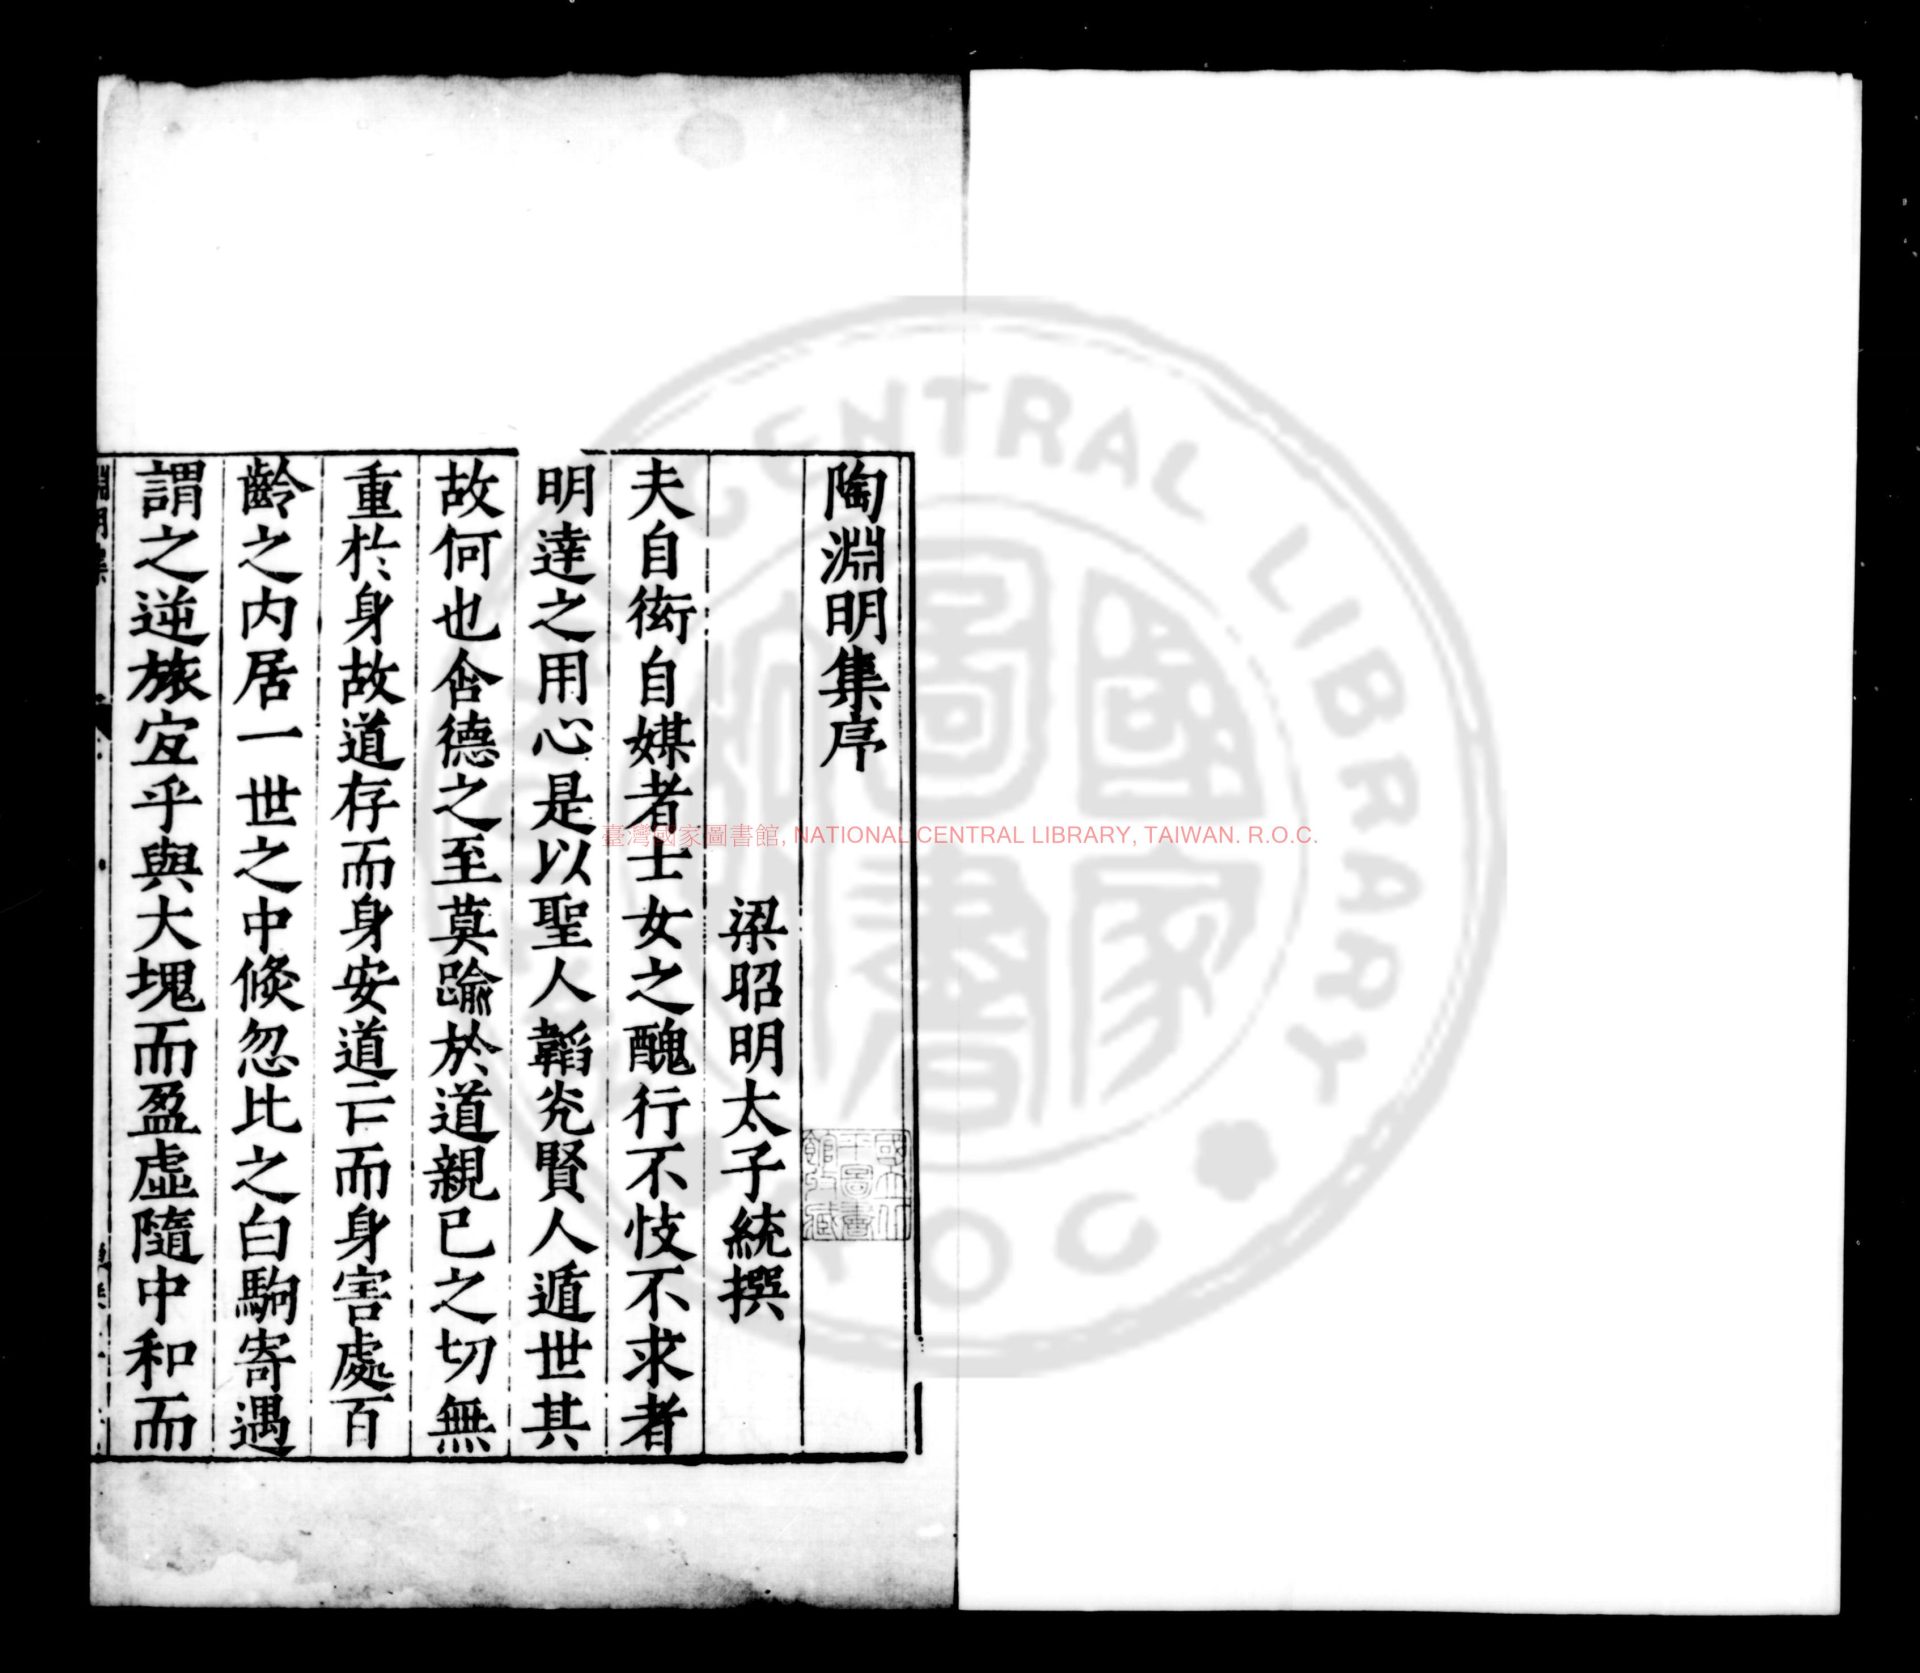 陶淵明集序
梁昭明太子統撰
夫自衒自媒者士女之醜行不忮不求者
明達之用心是以聖人韜光賢人遁世其
故何也含德之至莫踰於道親己之切無
重於身故道存而身安道亡而身害處百
齡之内居一世之中倐忽比之白駒寄遇
謂之逆旅宜乎與大塊而盈虛隨中和而
淵明集
臺灣國家圖書館, NATIONAL CENTRAL LIBRARY, TAIWAN. R.O.C.
CENTRAL LIBRARY
國家圖書館